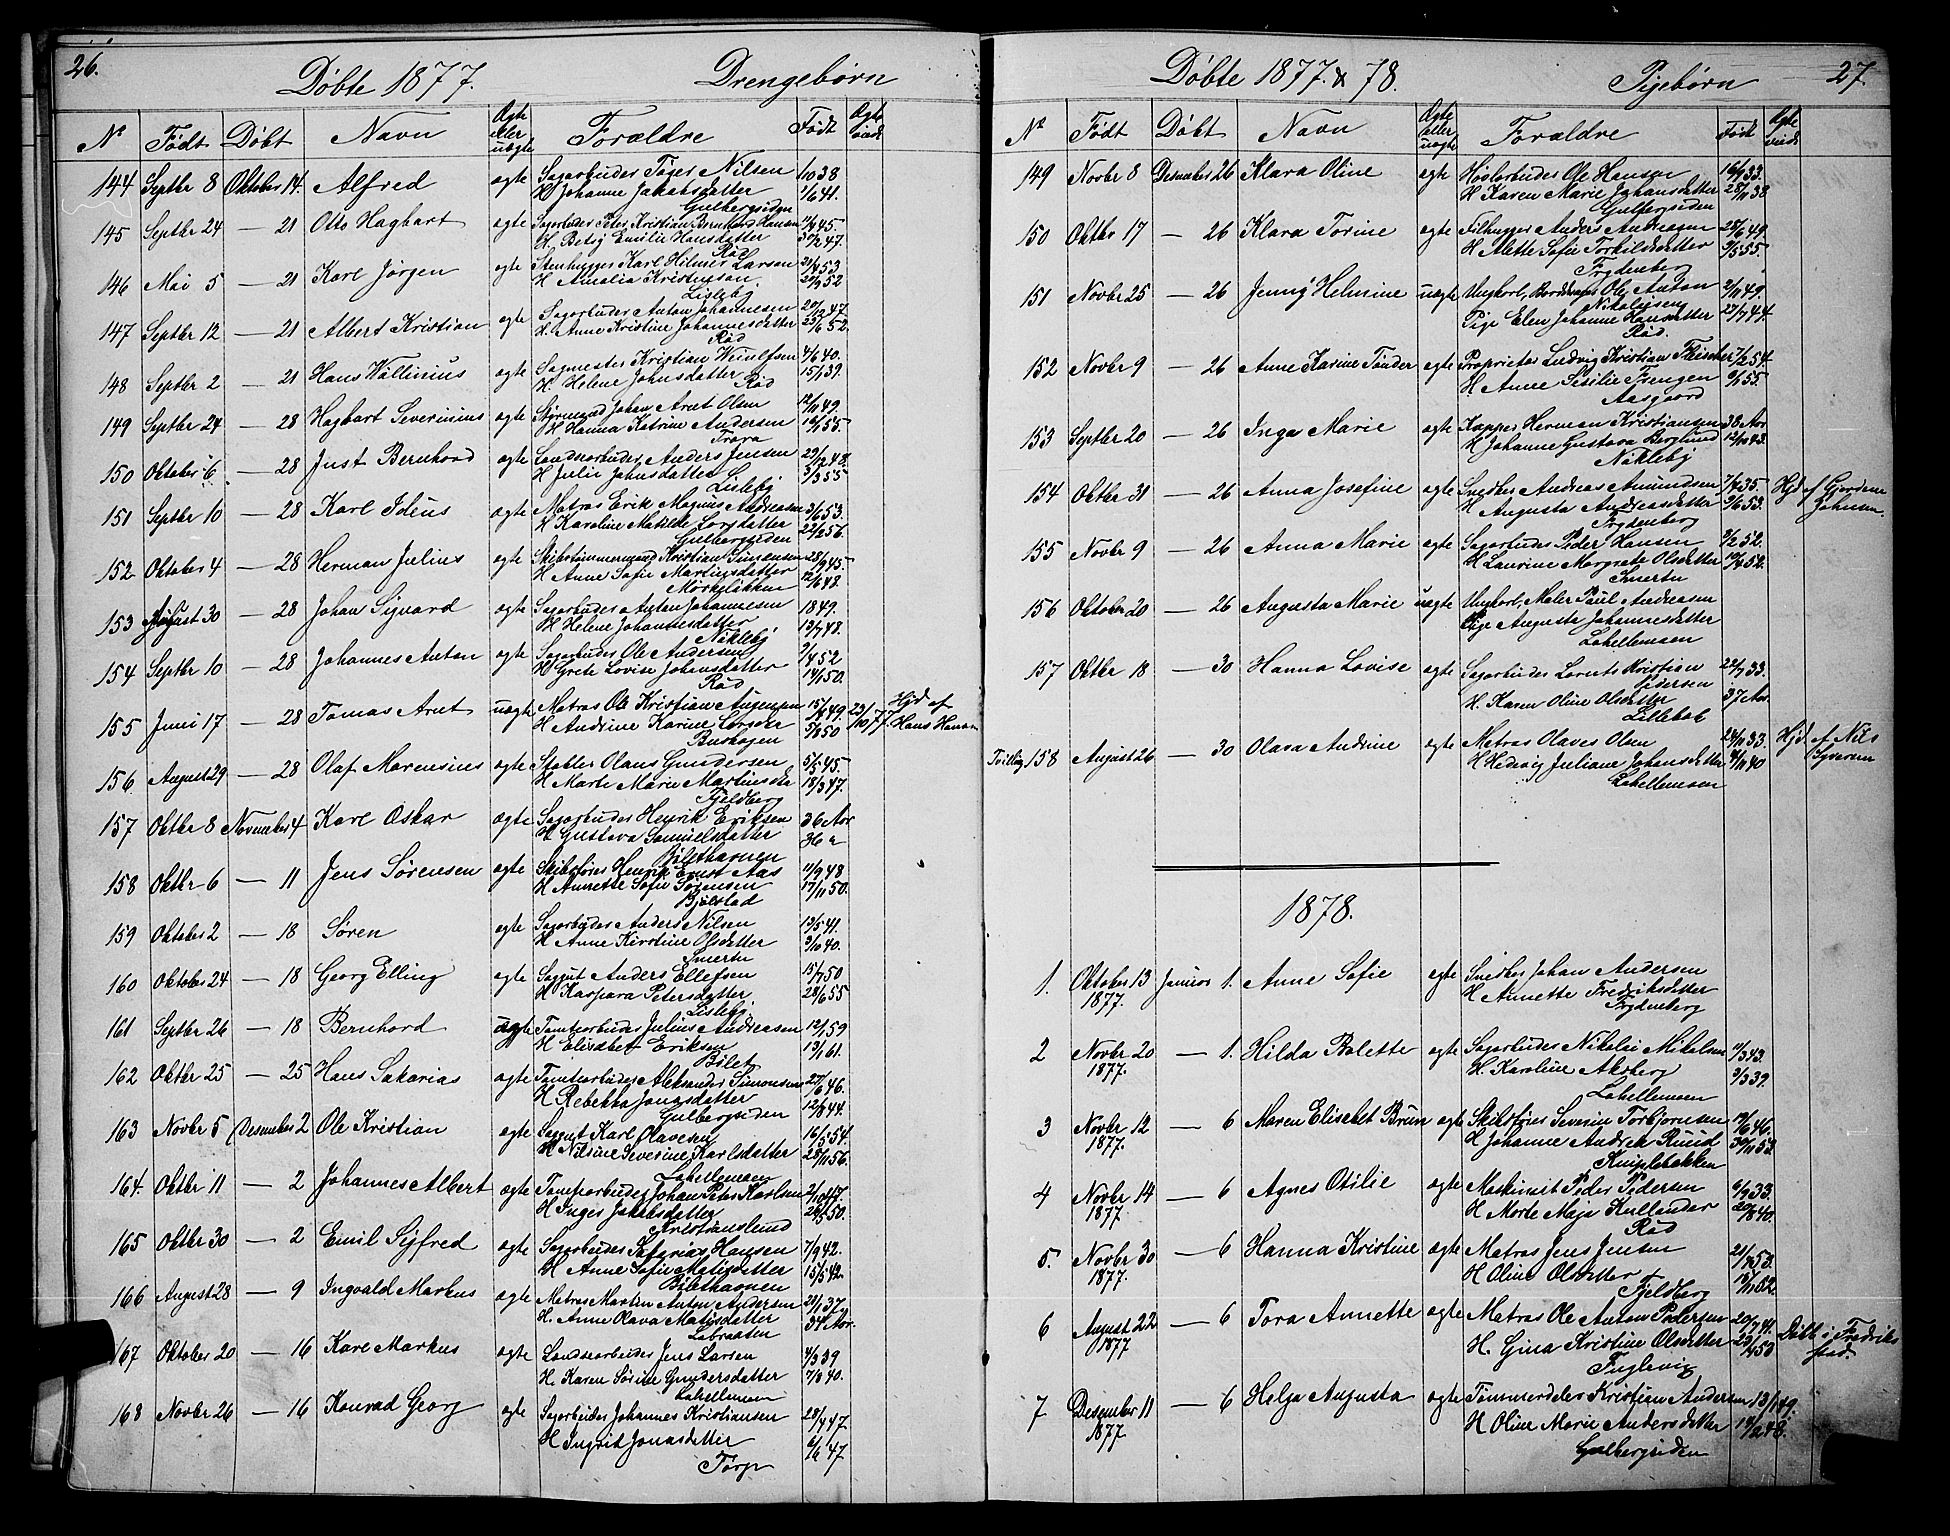 26.
Døbte 1877.
Drengebørn
Nº Født Døbt Navn Ægte eller uægte Forældre Født Ægteviede
144 Septbr 8 Oktober 14. Alfred ægte Sagarbeider Tøger Nilsen 1/10 38
H. Johanne Jakobsdatter 1/6 41.
Gulbergsiden
145 Septbr 24 — 21 Otto Hagbart ægte Sagarbeider Peter Kristian Bernhard Hansen
H. Betsy Emilie Hansdatter
Rød
146 Mai 5 — 21 Karl Jørgen ægte Stenhugger Karl Hilmer Larsen
H Amalia Kristensen
Lisleby
147 Septbr 12 — 21 Albert Kristian ægte Sagarbeider Anton Johannesen
H. Anne Kristine Johannesdatter
Rød
148 Septbr 2 — 21 Hans Wallinius ægte Sagmester Kristian 4/6 40.
H. Helene Johnsdatter 15/1 39.
Rød
149 Septbr 24 — 28 Hagbart Severinius ægte Styrmand Johan Aret Olsen 12/11 49.
H Hanna Katrine Andersen 10/1 55.
Trara
150 Oktober 6 — 28 Just Bernhard ægte Landsarbeider Anders Jensen
H Julie Johnsdatter 5/3 55
Lisleby
151 Septbr 10 — 28 Karl Idéus ægte Matros Erik Magnus Andreasen 3/1 53.
H Karoline Matilde Larsdatter 22/2 56.
Gulbergsiden
152 Oktober 4 — 28 Herman Julius ægte Skibstømmermand Kristian Simensen 28/9 45
H Anne Sofie Martinsdatter 12/6 48.
Mørkeløkken
153 August 30 — 28 Johan Sigvard ægte Sagarbeider Anton Johannesen 1849.
H Helene Johannesdatter 12/7 48.
Nikleby
154 Septbr 10 — 28 Johannes Anton ægte Sagarbeider Ole Andersen
H Grete Lovise Johansdatter 14/1 50.
Rød
155 Juni 17 — 28 Tomas Aret uægte Matros Ole Kristian Augensen 23/10 77. Hjd af
H Andrine Karine Larsen Hans Hansen
Buskogen
156 August 29 — 28 Olaf Marensius ægte Stabler Olaus Gundersen 5/5 45.
H Marte Marie Martinsda 18/3 47.
Fjeldberg
157 Oktbr 8 November 4 Karl Oskar ægte Sagarbeider Henrik Eriksen 36 Aar
H Gustava Samuelsdatter 36 "
Bilethavnen
158 Oktbr 6 — 11 Jens Sørensen ægte Skibsfører Henrik Ernst Aas 11/9 48
H Annette Sofie Sørensen 17/11 50.
Bjølstad
159 Oktober 2 — 18 Søren ægte Sagarbeider Anders Nilsen 13/5 41.
H Anne Kirstine Olsdatter 3/10 40.
Smertu
160 Oktober 24 — 18 Georg Elling ægte Saggut Anders Ellefsen 15/7 50
H Kaspara Petersdatter 28/6 55
Lisleby
161 Septbr 26 — 18 Bernhard uægte Tomtearbeider Julius Andreasen 12/1 59
H Elisabet Eriksen 13/1 61.
Bilet
162 Oktbr 25 — 25 Hans Sakarias ægte Tomtearbeider Aleksander Simonsen 27/6 46.
H Rebekka Jonasdatter 12/8 44.
Gulbergsiden
163 Novbr 5 Desember 2 Ole Kristian ægte Saggut Karl Olavesen 16/5 54.
H Nilsine Severine Karlsdatter 28/11 56.
Lahellemoen
164. Oktbr 11 — 2 Johannes Albert ægte Tomtearbeider Johan Peter Karlsen 2/10 47.
H Inger Jakobsdatter
Kristianslund
165 Oktbr 30 — 2 Emil Sigfred ægte Sagarbeider Sakarias Hansen 7/9 42.
H Anne Sofie Matisdatter 15/5 42.
Bilethavnen
166 August 28 — 9 Ingvald Markus ægte Matros Martin Anton Andersen 28/1 37.
H. Anne Olava Matisdatter 34 Aar.
Labraaten
167 Oktober 20 — 16 Karl Markus ægte Landsarbeider Jens Larsen 4/3 39
H. Karen Sørine Gundersdatter 7/8 40.
Lahellemoen
168 Novbr 26 — 16 Konrad Georg ægte Sagarbeider Johannes Kristiansen 28/4 47.
H Ingrid Jonasdatter 6/6 47
Torp
27.
Døbte 1877 & 78.
Pigebørn
Nº Født Døbt Navn Ægte eller uægte Forældre Født Ægteviede
149 Novbr 8 Desember 26 Klara Oline ægte Høvlarbeider Ole Hansen 16/9 33.
H Karen Marie Johansdatter 25/11 38
Gulbergsiden
150 Oktbr 17 — 26 Klara Torine ægte Filhugger Anders Andreasen 28/6 49.
H Alette Sofie Torkildsdatter 9/5 55.
Frydenberg
151 Novbr 25 — 26 Jenny Helmine uægte Ungkarl, Ole Anton 2/11 49.
Nikolaisen
Pige Elen Johanne Hansdatter 27/7 44.
Rød.
152 Novbr 9 — 26 Anne Karine Tønder ægte Proprietær Ludvig Kristian Thiis 7/2 54.
H. Anne Sesilie Frengen 9/1 55.
Aasgaard
153 Septbr 20 — 26 Inga Marie ægte Kapper Herman Kristiansen 38 Aar
H Johanne Gustava Berglund 12/10 43.
Nikleby
154 Oktbr 31 — 26 Anna Josefine ægte Snedker Andreas Amundsen 7/10 35 Hjd af Gjordem
H Augusta Andreasdatter 9/6 33. Johnsen.
Frydenberg
155 Novbr 9 — 26 Anna Marie ægte Sagarbeider Peder Hansen 7/2 52.
H Laurine Margrete Olsdatter 19/4 52.
Smertu
156 Oktober 20 — 26 Augusta Marie uægte Ungkarl, Maler Paul Andreasen
Pige Augusta Johannesdatter
Lahellemoen
157 Oktbr 18 — 30 Hanna Lovise ægte Sagarbeider Laurits Kristian 22/7 33.
Pedersen
H. Karen Oline Olsdatter 37 Aar.
Lillebæk
Tvilling 158 August 26 — 30 Olava Andrine ægte Matros Olaves Olsen 24/11 33. Hjd. af Nils
H Hedevig Juliane Johansdatter Byversen
Lahellemoen
1878.
1. Oktober 13 1877. Januar 1. Anne Sofie ægte Snedker Johan Andersen
H Annette Fredriksdatter
Frydenberg
2 Novbr 20 1877. — 1. Hilda Bolette ægte Sagarbeider Nikolai Mikelsen 11/3 43.
H. Karoline Aksberg 9/3 39.
Lahellemoen
3 Novbr 12 1877. — 6 Maren Elisebet Brun ægte Skibsfører Severin Torbjørnsen 12/6 46.
H Johanne Andrea Ruud 30/11 53.
Kniplebakken
4 Novbr 14 1877 — 6 Agnes Otilie ægte Maskinist Peder Pedersen 6/9 33.
H Marte Maja Kullander 20/8 40.
Rød
5. Novbr 30 1877. — 6 Hanna Kristine ægte Matros Jens Jensen
H Oline Olsdatter
Fjeldberg
6 August 22 1877 — 6 Tora Annette ægte Matros Ole Anton Pedersen 20/7 41. Døbt i Fredrik
H. Gina Kristine Olsdatter 29/4 53 stad.
Fuglevig
7 Desember 11 1877. — 6 Helga Augusta ægte Tømmerdeler Kristian Andersen 13/1 49.
H Oline Marie Andersdatter 19/2 48.
Gulbergsiden